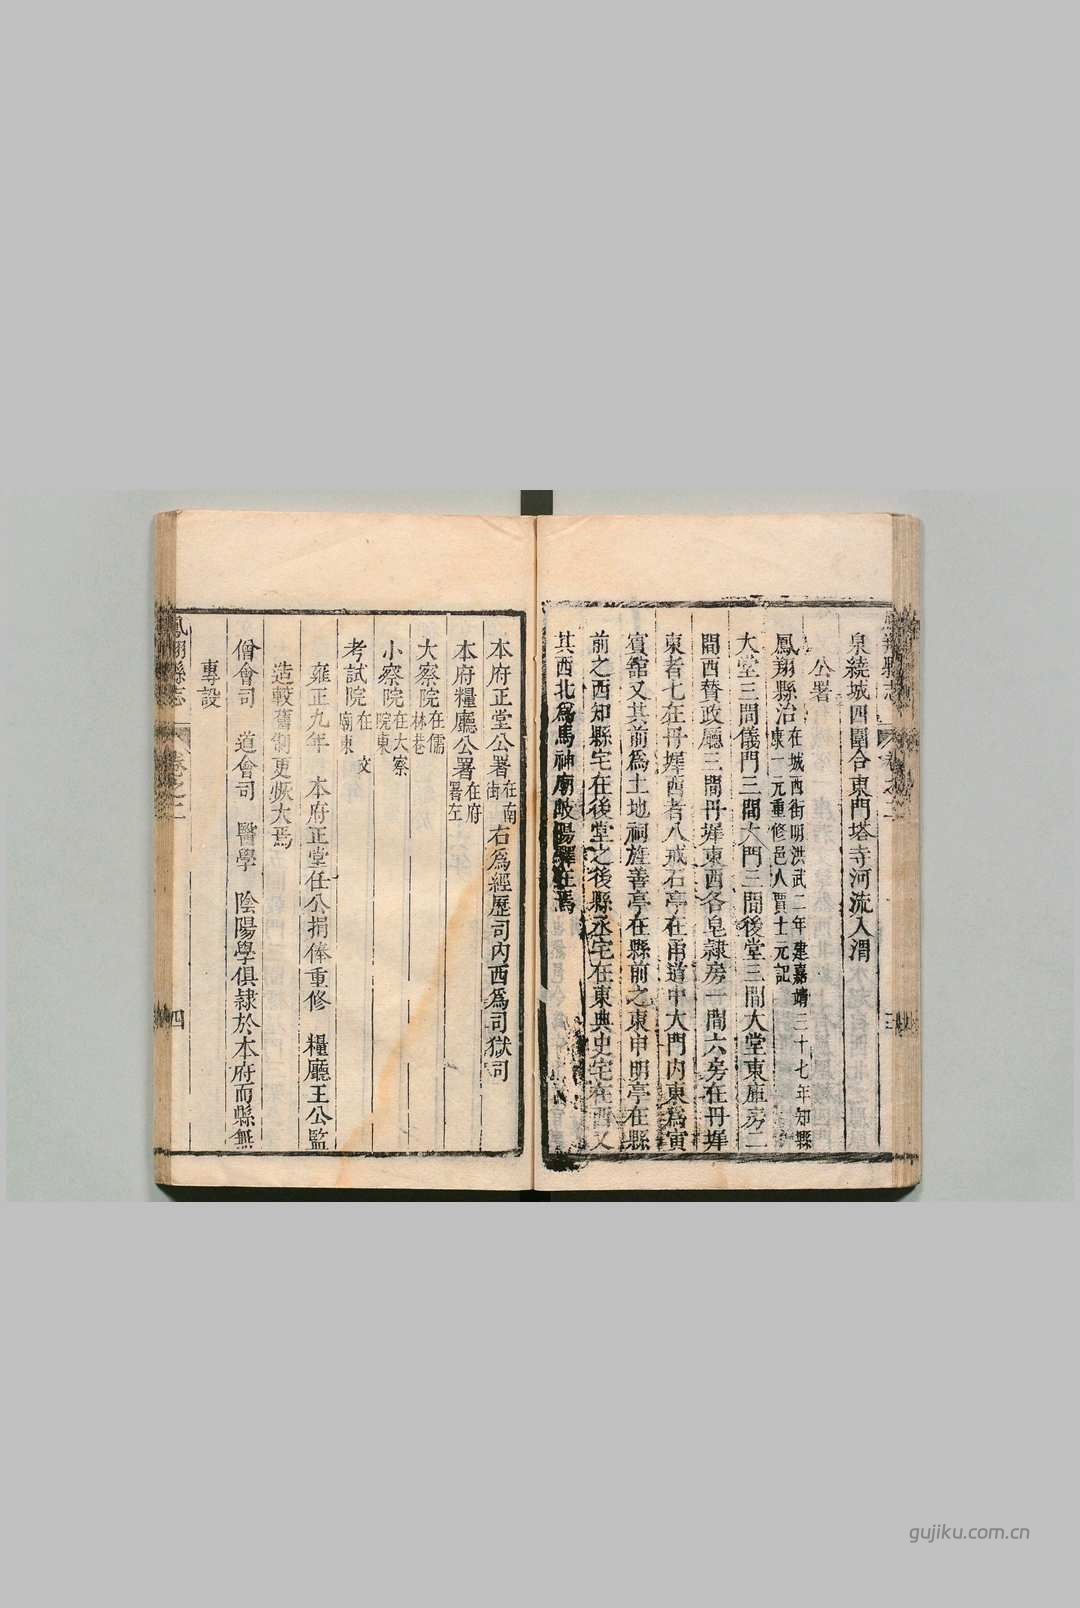 鳳翔縣志
卷之二
三
泉繞城四圍合東門塔寺河流入渭
公署
鳳翔縣治在城西街明洪武二年建嘉靖三十七年知縣
東一元重修邑人賈士元記
大堂三間儀門三間大門三間後堂三間大堂東庫房二
間西賛政廳三間丹墀東西各皂隸房一間六房在丹墀
東者七在丹墀西者八戒石亭在甬道中大門內東爲寅
賓舘又其前爲土地祠旌善亭在縣前之東申明亭在縣
前之西知縣宅在後堂之後縣丞宅在東典史宅在西又
其西北爲馬神廟岐陽驛在焉
本府正堂公署在南
街右爲經歷司內西爲司獄司
本府糧廳公署在府
署左
大察院在儒
林巷
小察院在大察
院東
考試院在文
廟東
雍正九年 本府正堂任公捐俸重修 糧廳王公監
造較舊制更恢大焉
僧會司 道會司 醫學 陰陽學俱隸於本府而縣無
專設
鳳翔縣志
卷之二
四
gujiku.com.cn